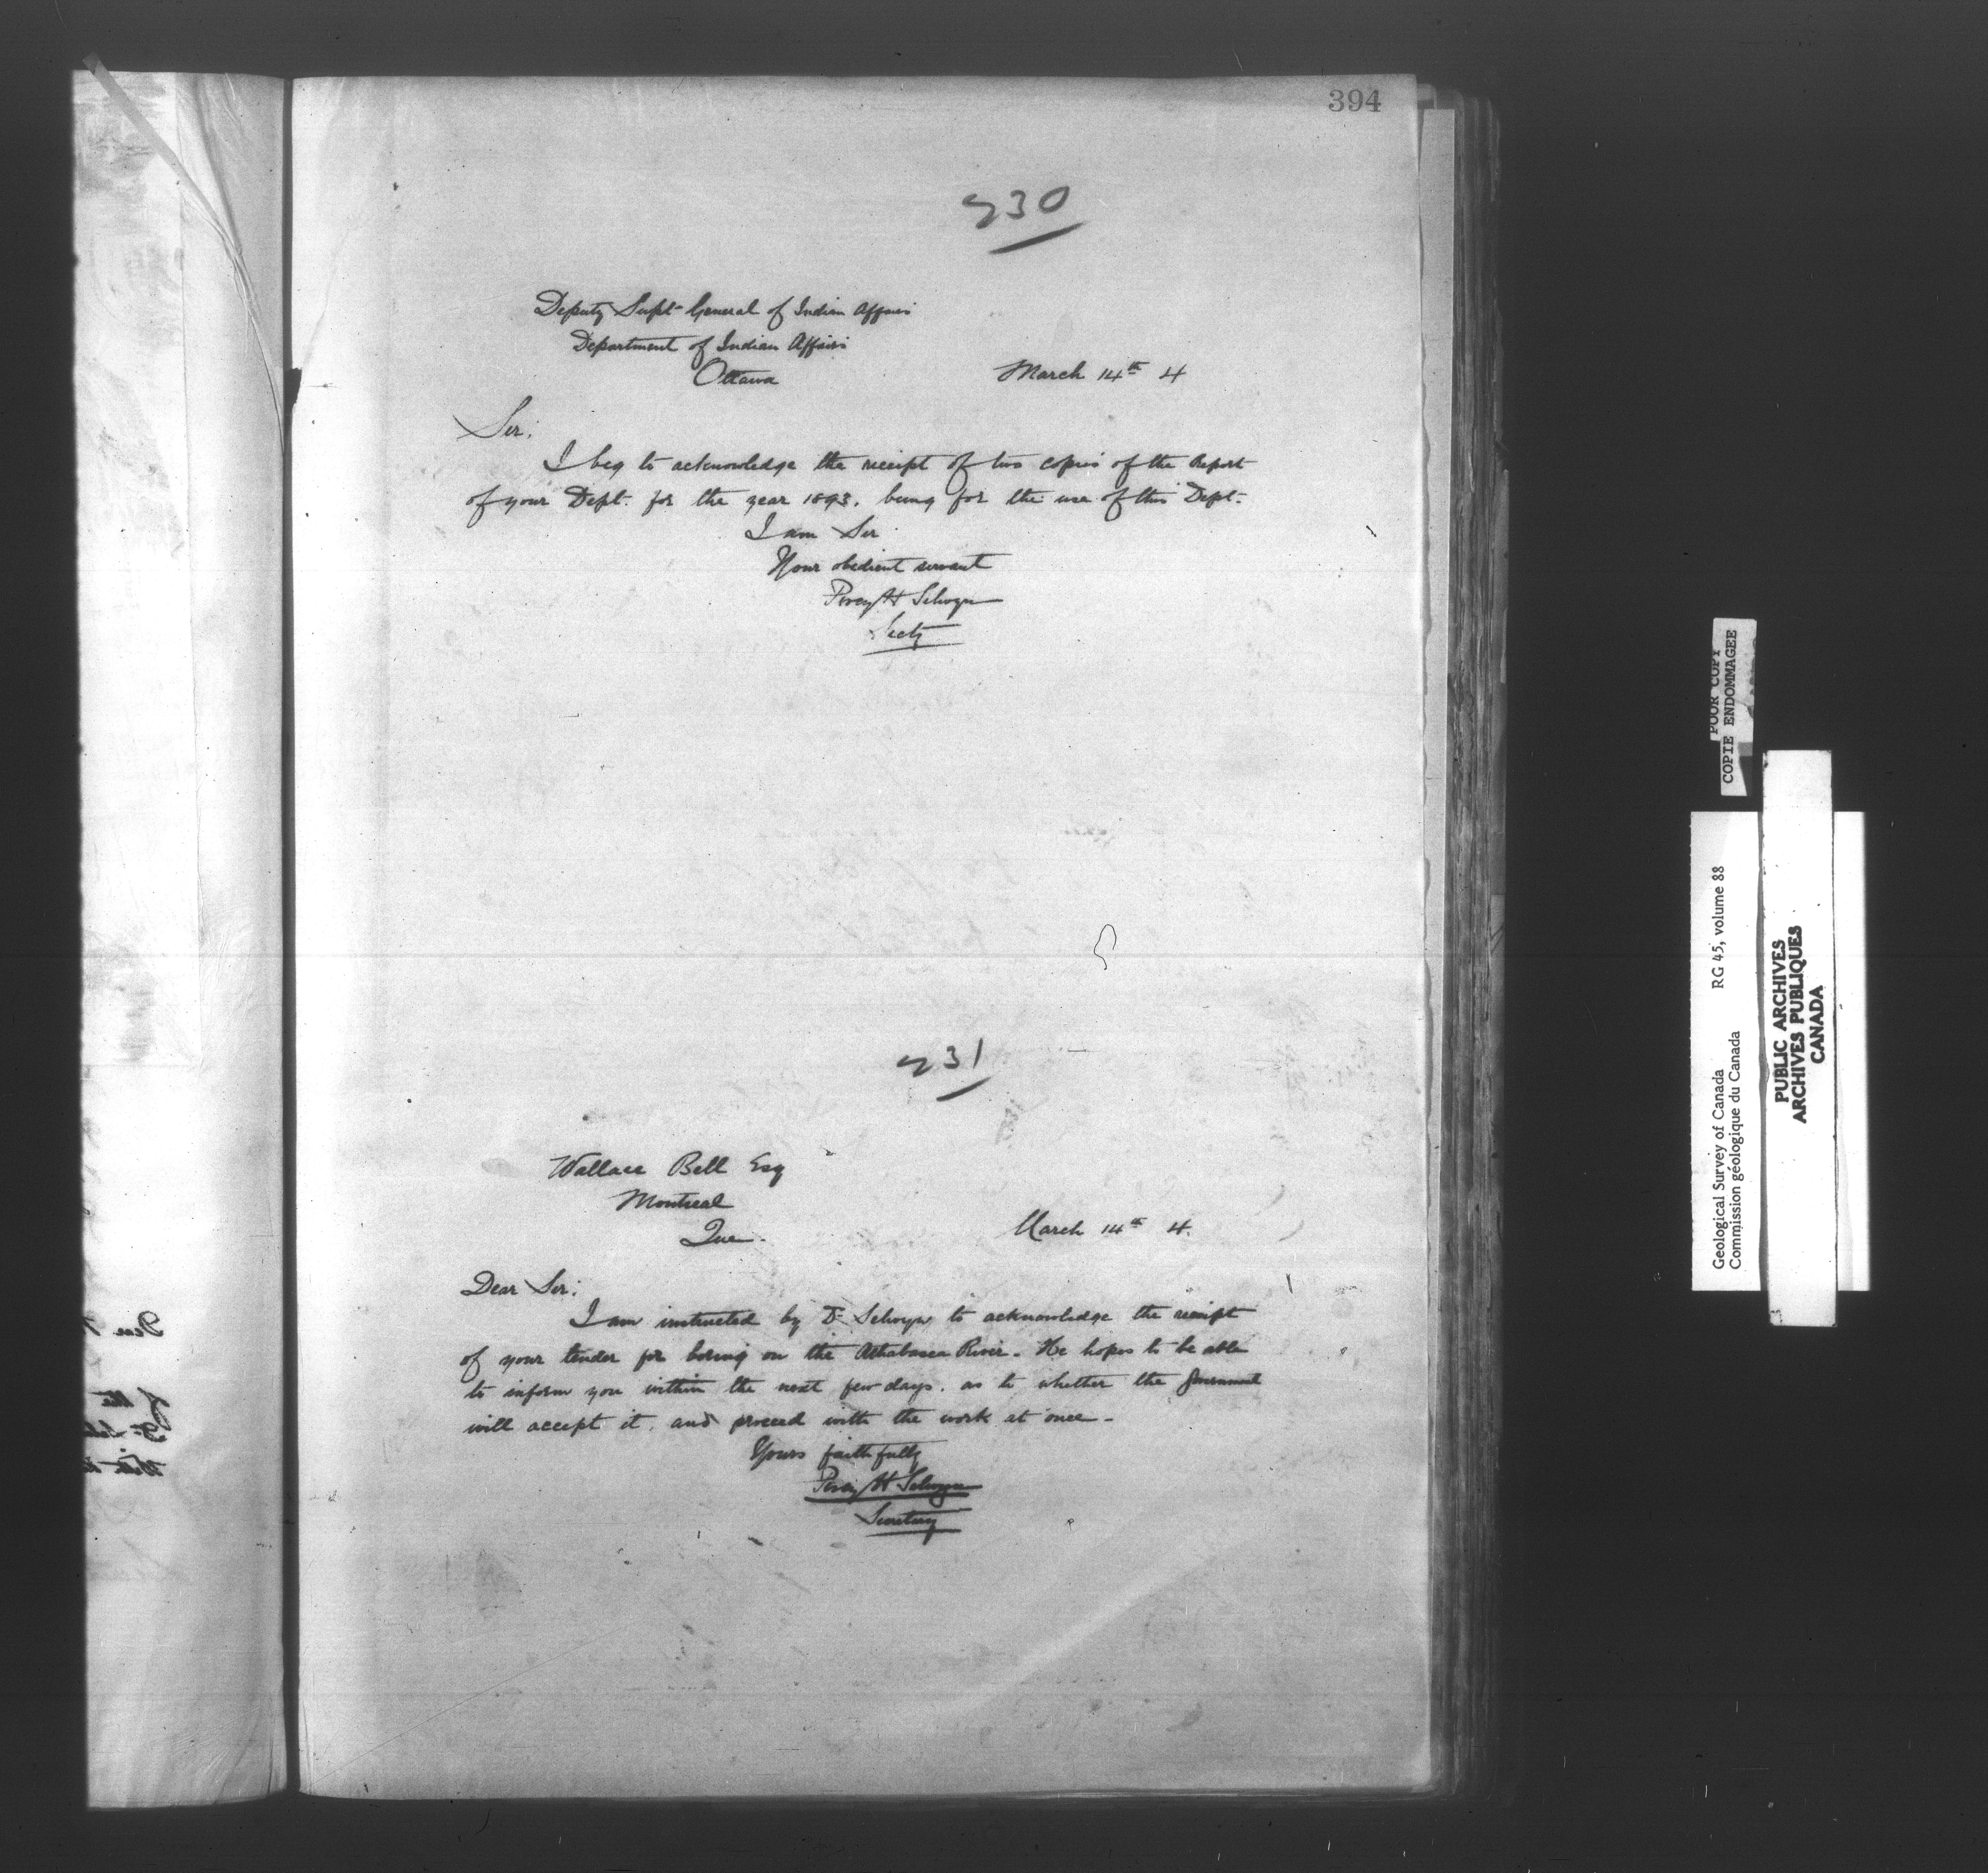 394
730
Deputy Supt General of Indian Affairs
Department of Indian Affairs
Ottawa
March 14th 4
Sir:
I beg to acknowledge the receipt of two copies of the Report
of your Dept. for the year 1893, being for the use of this Dept.
I am Sir
Your obedient servant
Percy H Selwyn
Secty
731
Wallace Bell Esq
Montreal
Que.
March 14th 4.
Dear Sir:
I am instructed by Dr Selwyn to acknowledge the receipt
of your tender for boring on the Athabasca River. He hopes to be able
to inform you within the next few days, as to whether the Government
will accept it, and proceed with the work at once.
Yours faithfully
Percy H Selwyn
Secretary
POOR COPY
COPIE ENDOMMAGEE
Geological Survey of Canada RG 45, volume 88
Commission géologique du Canada
PUBLIC ARCHIVES
ARCHIVES PUBLIQUES
CANADA